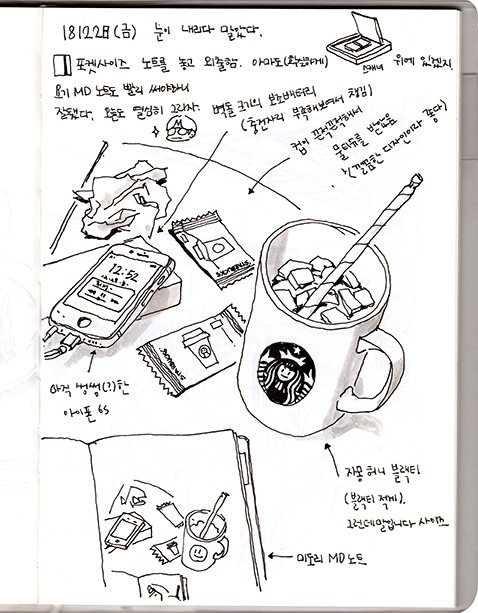 181228(금) 눈이 내리다 말았다.
포켓사이즈 노트를 놓고 외출함. 아마도(확실하게) 스캐너 위에 있겠지.
MD 노트도 빨리 써야하니
잘됐다. 오늘도 열심히 그리자. 벽돌 크기의 보조배터리
(충전자리 부족해보여서 챙김)
컵이 끈적끈적해서
물티슈를 받았음
(깔끔한 디자인이다 좋다)
12:52
STARBUCKS
STARBUCKS
아직 쌩쌩(?)한
아이폰 6s
자몽 허니 블랙티
(블랙티 적게).
그런데말입니다 사이즈
미도리 MD 노트